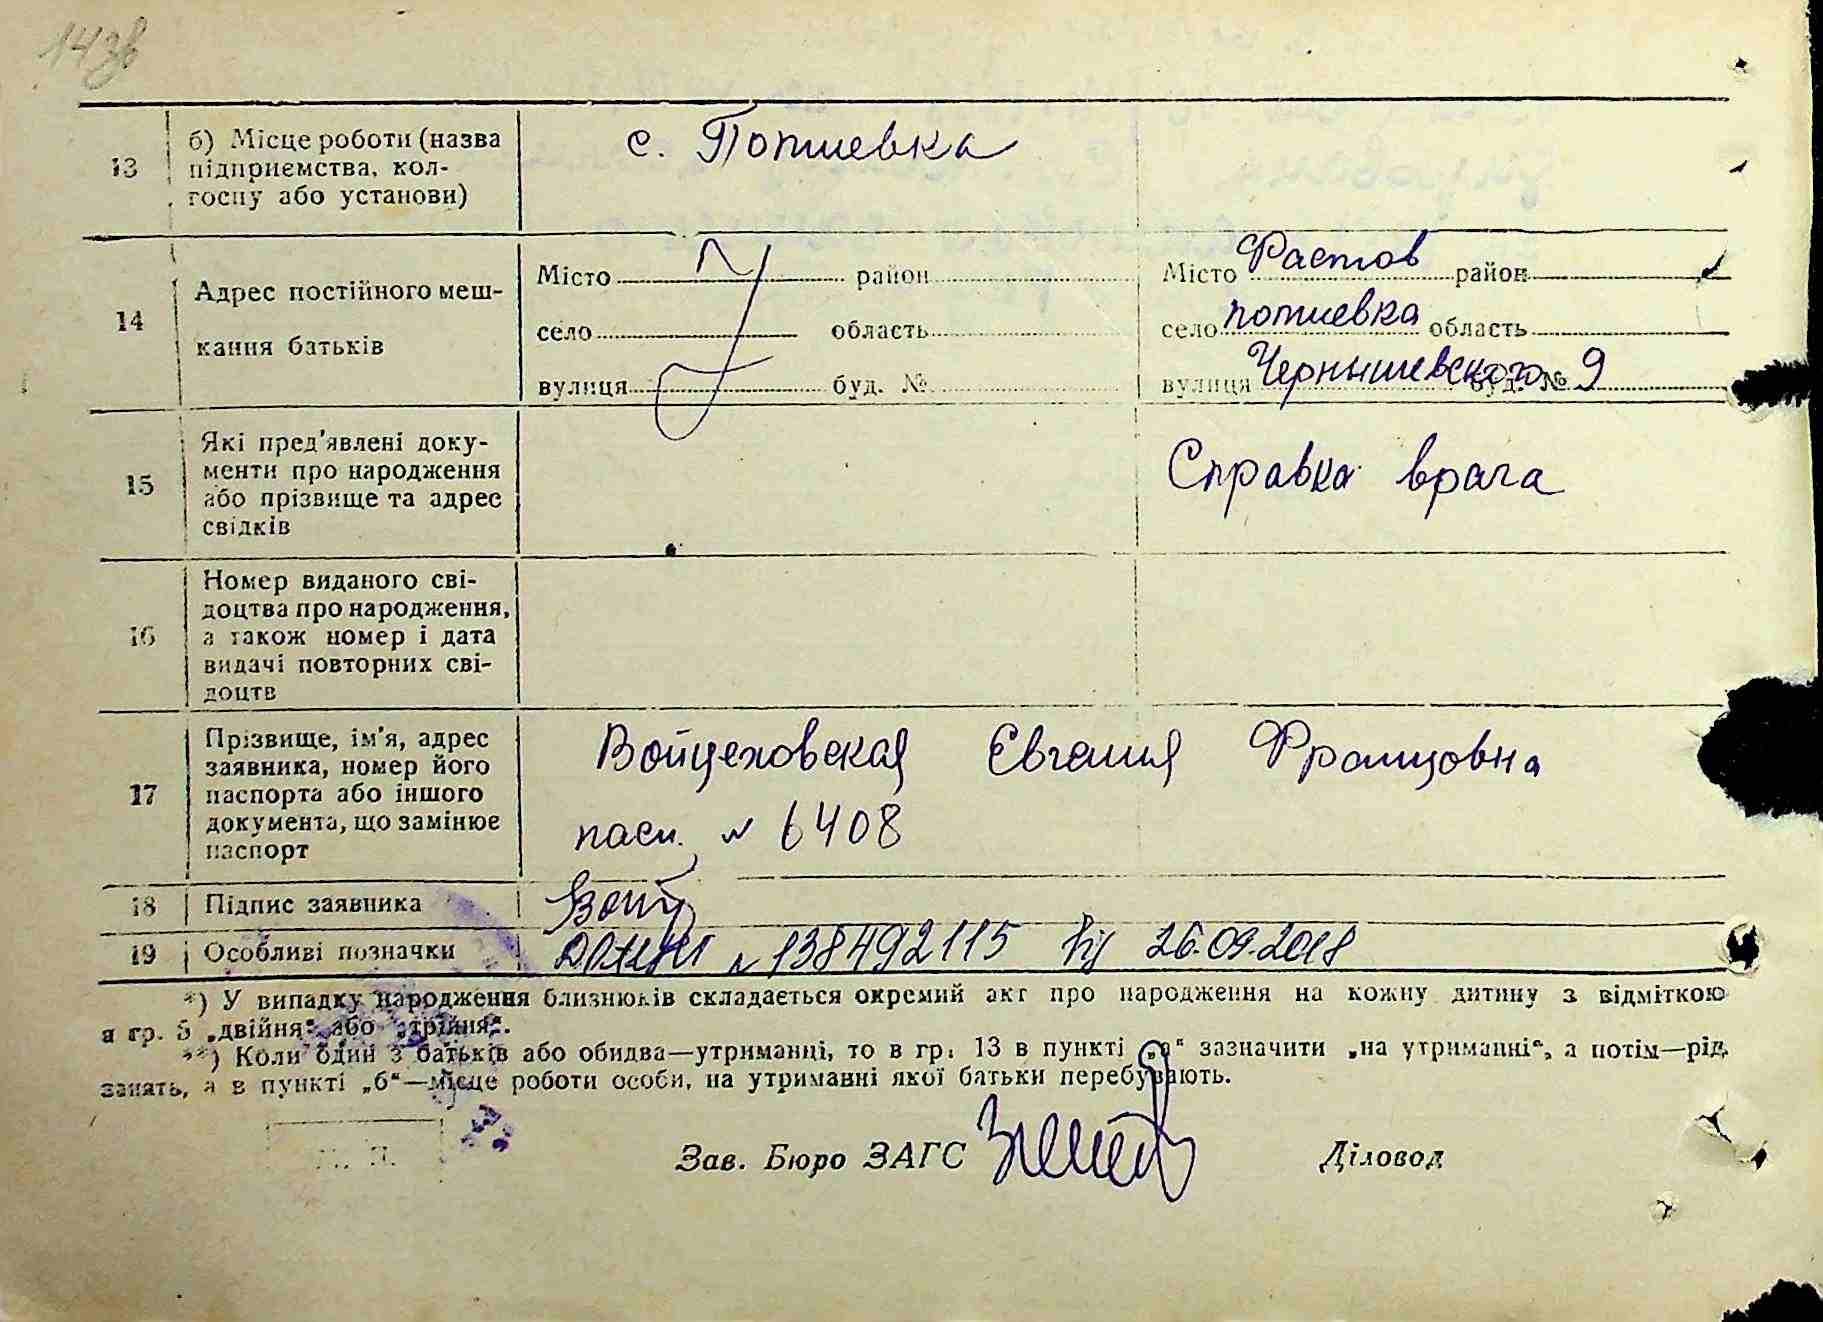 143в
13
б) Місце роботи (назва
підприємства, кол-
госпу або установи)
с. Потиевка
14
Адрес постійного меш-
кання батьків
Місто район
село область
вулиця буд. №
Місто Растов район
село потиевка область
вулиця Чернышевского буд. № 9
15
Які пред'явлені доку-
менти про народження
або прізвище та адрес
свідків
Справка врача
16
Номер виданого сві-
доцтва про народження,
а також номер і дата
видачі повторних сві-
доцтв
17
Прізвище, ім'я, адрес
заявника, номер його
паспорта або іншого
документа, що замінює
паспорт
Войцеховская Евгения Францовна
пасп. № 6408
18
Підпис заявника
Войц
19
Особливі позначки
№ 138492115 від 26.09.2018
*) У випадку народження близнюків складається окремий акт про народження на кожну дитину з відміткою
в гр. 5 „двійня“ або „трійня“.
**) Коли один з батьків або обидва—утриманці, то в гр. 13 в пункті „а“ зазначити „на утриманні“, а потім—рід
занять, а в пункті „б“—місце роботи особи, на утриманні якої батьки перебувають.
М. П.
Зав. Бюро ЗАГС
Діловод